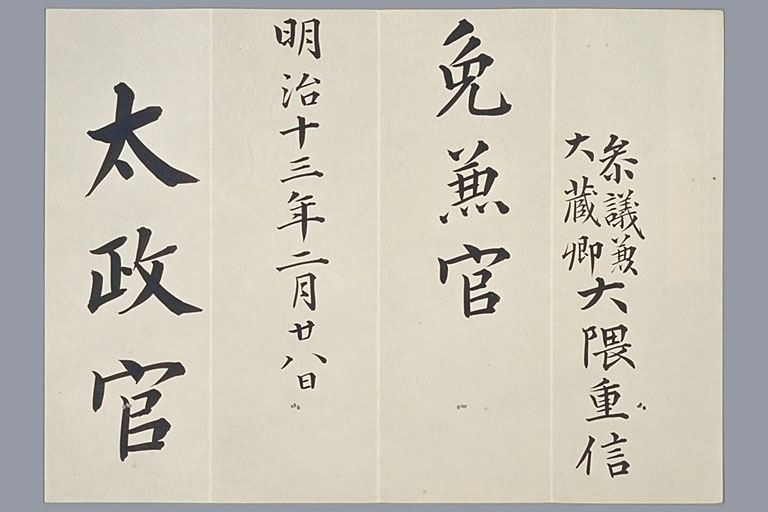 参議兼
大蔵卿大隈重信
免兼官
明治十三年二月廿八日
太政官